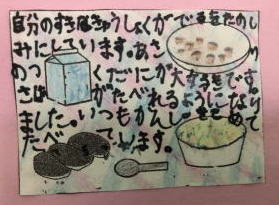 自分のすきなきゅうしょくがでる日をたのし
みにしています。あさ
のつくだにが大好きです。
さばがたべれるようになり
ました。いつもかんしゃをこめて
たべています。